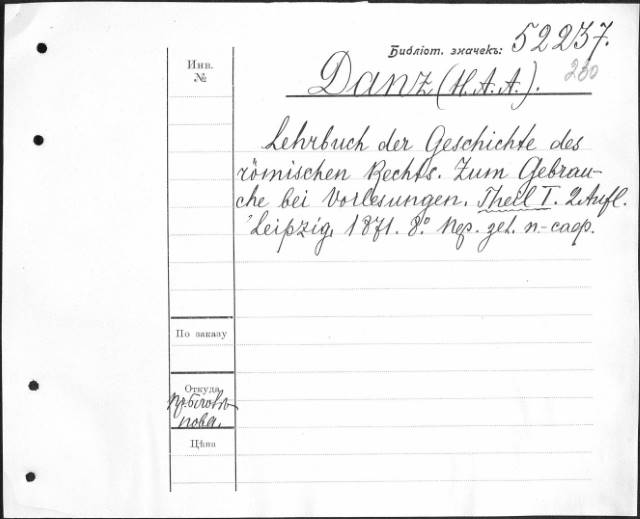 Библіот. значекъ: 52237.
Инв.
№
230
Danz (H. A. A.).
Lehrbuch der Geschichte des
römischen Rechts. Zum Gebrau-
che bei Vorlesungen. Theil I. 2 Aufl.
Leipzig, 1871. 8º
По заказу
Откуда
Цѣна